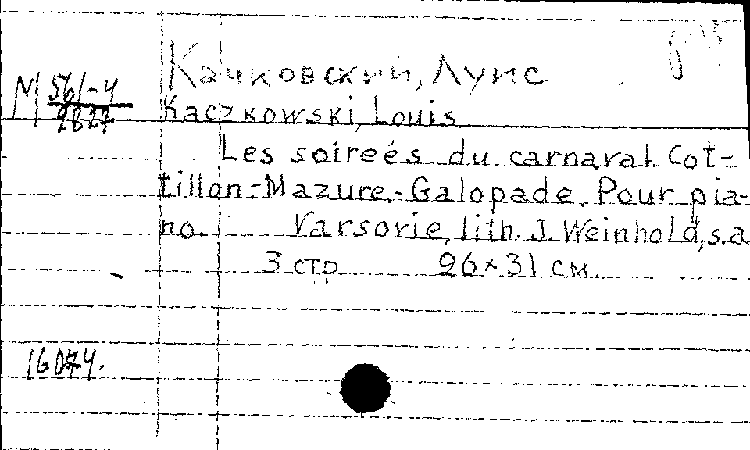 Качковский, Луис
М 561-4
2827
Kaczkowski, Louis
Les soireés du carnaval. Cot-
tillon-Mazure-Galopade. Pour pia-
no. Varsovie, lith. J. Weinhold, s.a
3 стр 26×31 см.
16074.